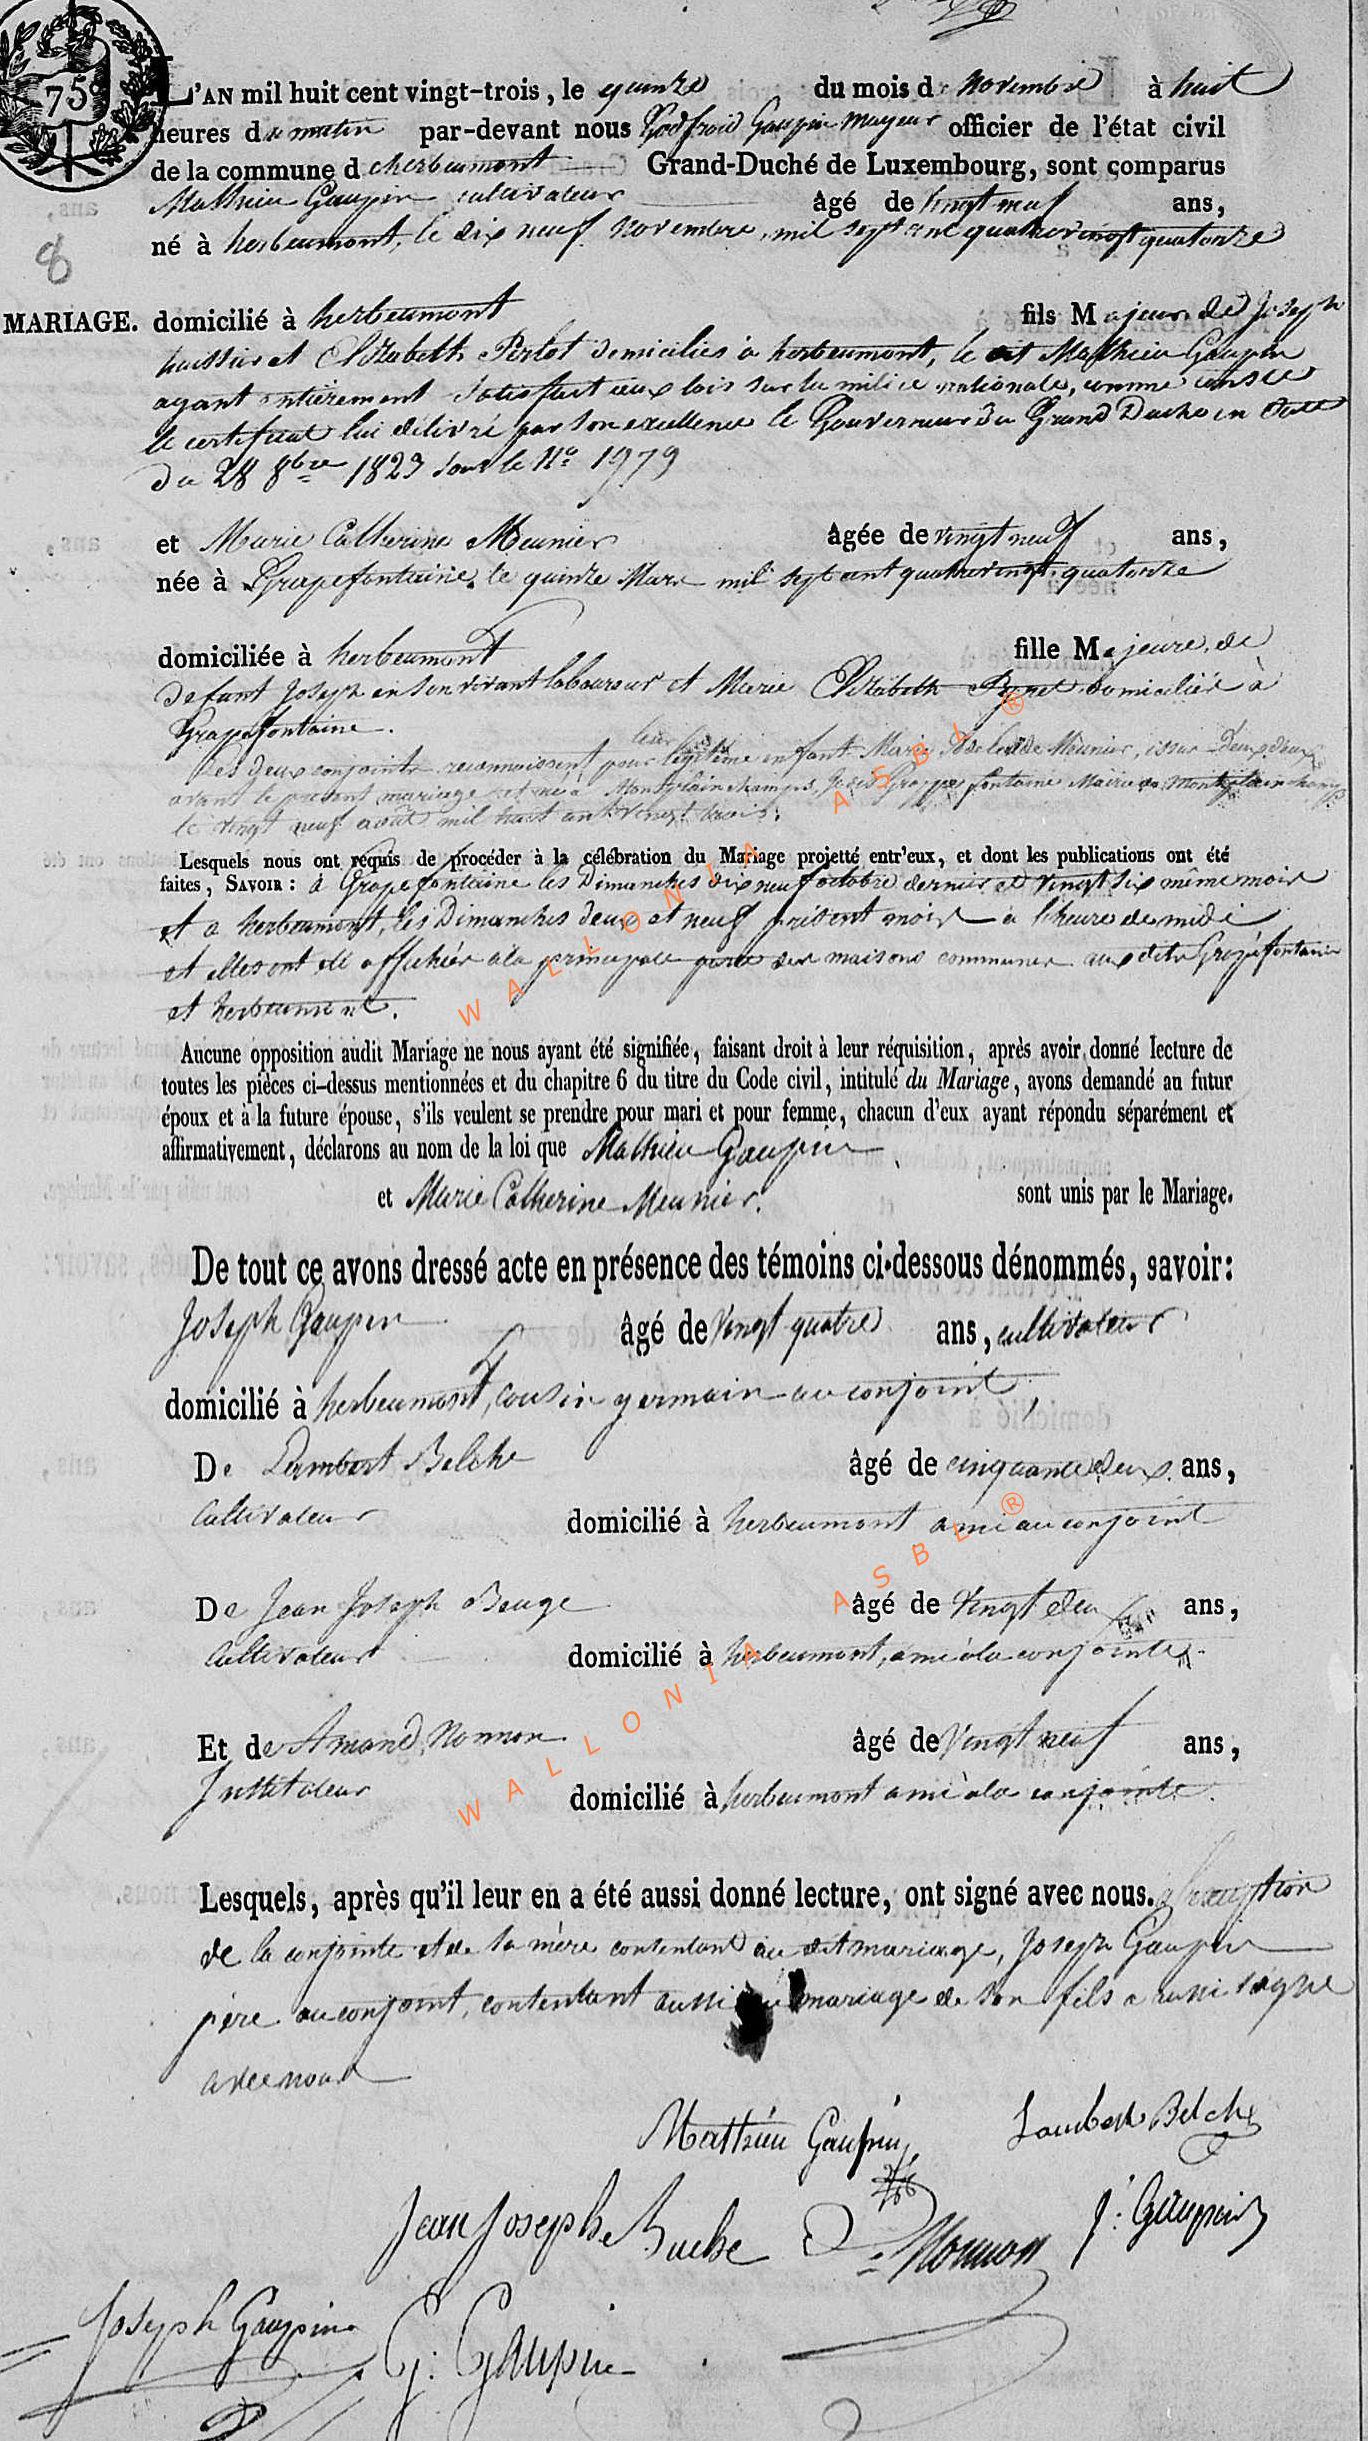 75c
L'AN mil huit cent vingt-trois, le quinze du mois de Novembre à huit
heures du matin par-devant nous Godfroid Gaupin Mayeur officier de l'état civil
de la commune d'herbeumont Grand-Duché de Luxembourg, sont comparus
Mathieu Gaupin cultivateur âgé de vingt neuf ans,
né à herbeumont, le dix neuf Novembre mil sept cent quatrevingt quatorze
8
MARIAGE. domicilié à herbeumont fils Majeur de Joseph
huissier et Elizabeth Perlot domiciliés à herbeumont, le dit Mathieu Gaupin
ayant entièrement satisfait aux lois sur la milice nationale, comme conste
le certificat lui délivré par son excellence le Gouverneur du Grand Duché en date
du 28 8bre 1823 sous le No 1979
et Marie Catherine Meunier âgée de vingt neuf ans,
née à Grapefontaine, le quinze Mars mil sept cent quatrevingt quatorze
domiciliée à herbeumont fille Majeure, de
defunt Joseph en son vivant laboureur et Marie Elizabeth domiciliée à
Grapefontaine.
Les deux conjoints reconnoissent pour leur légitime enfant Marie Meunier, issue d'eux deux
avant le présent mariage et né à Montplainchamps, fontaine Mairie de Montplainchamps
le vingt neuf août mil huit cent vingt trois.
Lesquels nous ont requis de procéder à la célébration du Mariage projetté entr'eux, et dont les publications ont été
faites, SAVOIR : à Grapefontaine les Dimanches dix neuf octobre dernier et vingt six même mois
et a herbeumont, les Dimanches deux et neuf présent mois à l'heure de midi
et elles ont été affichées à la principale porte des maisons communes aux dits Grapefontaine
et herbeumont.
Aucune opposition audit Mariage ne nous ayant été signifiée, faisant droit à leur réquisition, après avoir donné lecture de
toutes les pièces ci-dessus mentionnées et du chapitre 6 du titre du Code civil, intitulé du Mariage, avons demandé au futur
époux et à la future épouse, s'ils veulent se prendre pour mari et pour femme, chacun d'eux ayant répondu séparément et
affirmativement, déclarons au nom de la loi que Mathieu Gaupin
et Marie Catherine Meunier. sont unis par le Mariage.
De tout ce avons dressé acte en présence des témoins ci-dessous dénommés, savoir:
Joseph Gaupin âgé de vingt quatre ans, cultivateur
domicilié à herbeumont, cousin germain au conjoint,
De Lambert Belche âgé de cinquante deux ans,
Cultivateur domicilié à herbeumont ami au conjoint
De Jean Joseph Beuge âgé de vingt deux ans,
Cultivateur domicilié à herbeumont, ami à la conjointe.
Et de Amand Nonnon âgé de vingt neuf ans,
Instituteur domicilié à herbeumont ami à la conjointe.
Lesquels, après qu'il leur en a été aussi donné lecture, ont signé avec nous. à l'exception
de la conjointe et de sa mère contentant au dit mariage, Joseph Gaupin
père au conjoint, contentant aussi au mariage de son fils a aussi signé
avec nous
Matthieu Gaupin Lambert Belche
Jean Joseph Buche Nonnon J: Gaupin
Joseph Gaupin G: Gaupin
WALLONIA ASBL ®
WALLONIA ASBL ®